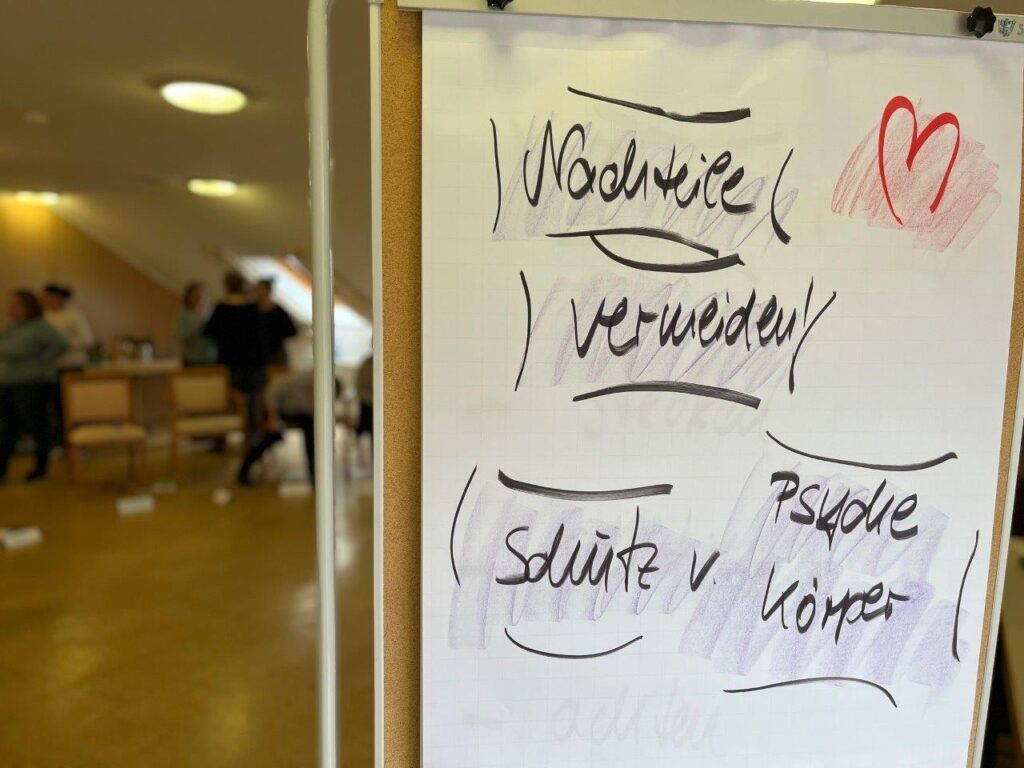 Nachteile
vermeiden
Schutz v.
Psyche
Körper
achten